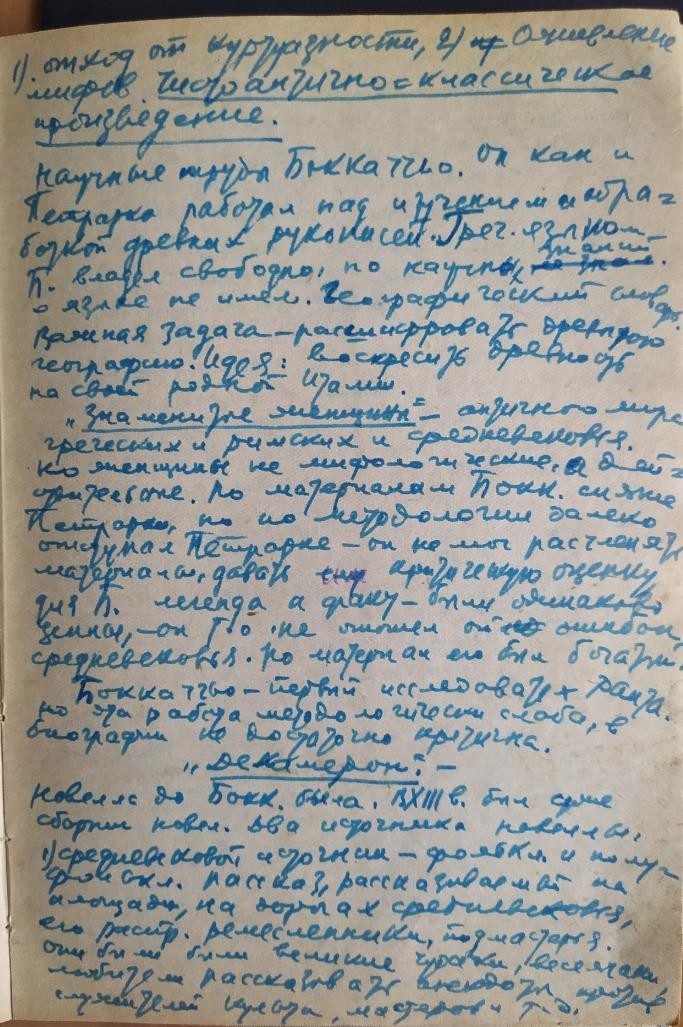 1). отход от куртуазности, 2) Оживление
мифов. Чисто антично=классическое
произведение.
Научные труды Боккаччо. Он как и
Петрарка работал над изучением и обра=
боткой древних рукописей. Греч. языком
Б. владел свободно, но научных знаний
о языке не имел. Географический словарь.
Важная задача – расшифровать древнюю
географию. Идея: воскресить древность
на своей родной Италии.
„Знаменитые женщины" – античного мира
греческих и римских и средневековья.
но женщины не мифологические, а дей=
ствительные. По материалам Бокк. сильнее
Петрарки, но по методологии далеко
отступал Петрарке – он не мог расчленять
материалы, давать критическую оценку
для Б. легенда и факт – были одинаково
ценны, – он т.о. не отошел от ошибок
средневековья. Но материал его был богатый.
Боккаччо – первый исследователь Данта.
но эта работа методологически слаба, в
биографии не достаточно критична.
„Декамерон". –
Новелла до Бокк. была. В XIII в. был уже
сборник новел. Два источника новеллы.
1) средневековой источник – фаблио и
рассказ, рассказываемый на
площади, на дорогах средневековья,
его распр. ремесленники, подмастерья.
они были великие чудаки, весельчаки
любители рассказывать анекдоты против
служителей культа, мастеров и т.д.